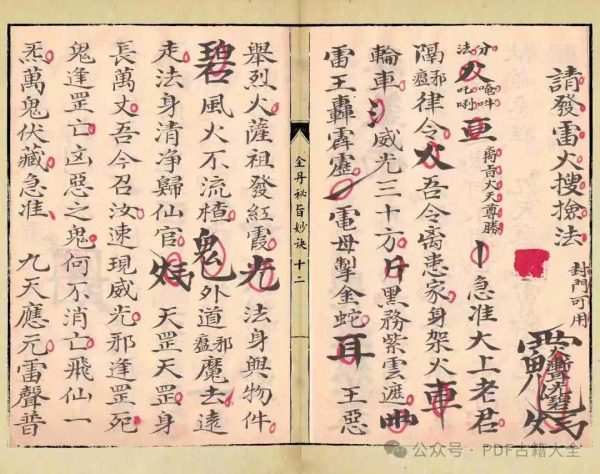 請發雷火搜撿法 封門可用
急准大上老君
律令 吾今离患家身架火車
輪車 威光三十方 片 黑務紫雲遮
雷王轟霹靂 電母掣金蛇 耳 王惡
金丹秘旨妙诀 十二
舉烈火薩祖發紅霞 光 法身與物件
碧 風火不流楂 鬼 外道邪瘟魔去遠
走法身清净歸仙官 天罡天罡身
長萬丈吾今召汝速現威光邪逢罡死
鬼逢罡亡凶惡之鬼何不消亡飛仙一
炁萬鬼伏藏急准 九天應元雷聲普
公众号·PDF古籍大全